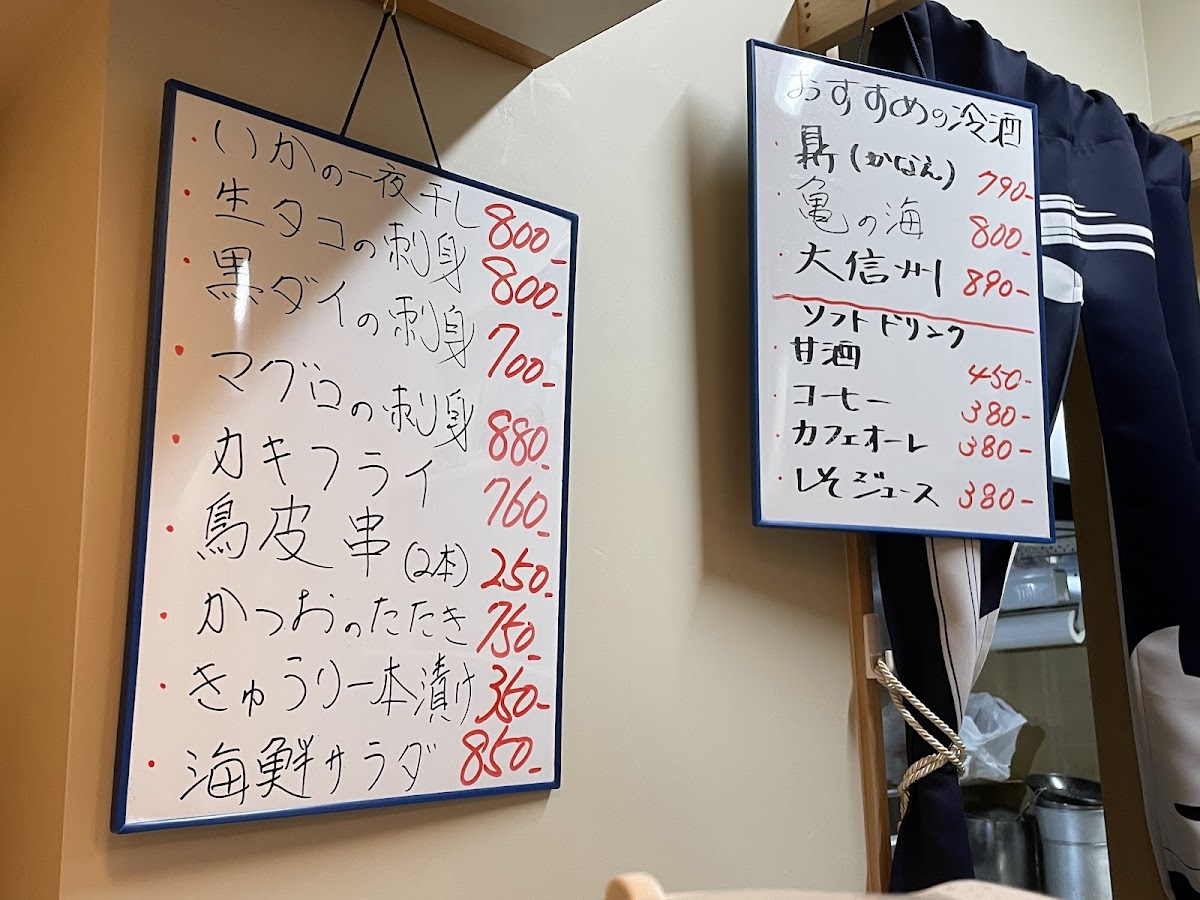 ・いかの一夜干し 800-
・生タコの刺身 800-
・黒ダイの刺身 700-
・マグロの刺身 880-
・カキフライ 760-
・鳥皮串(2本) 250-
・かつおのたたき 750-
・きゅうり一本漬け 360-
・海鮮サラダ 850-
おすすめの冷酒
・鼎(かなえ) 790-
・亀の海 800-
・大信州 890-
ソフトドリンク
・甘酒 450-
・コーヒー 380-
・カフェオーレ 380-
・しそジュース 380-